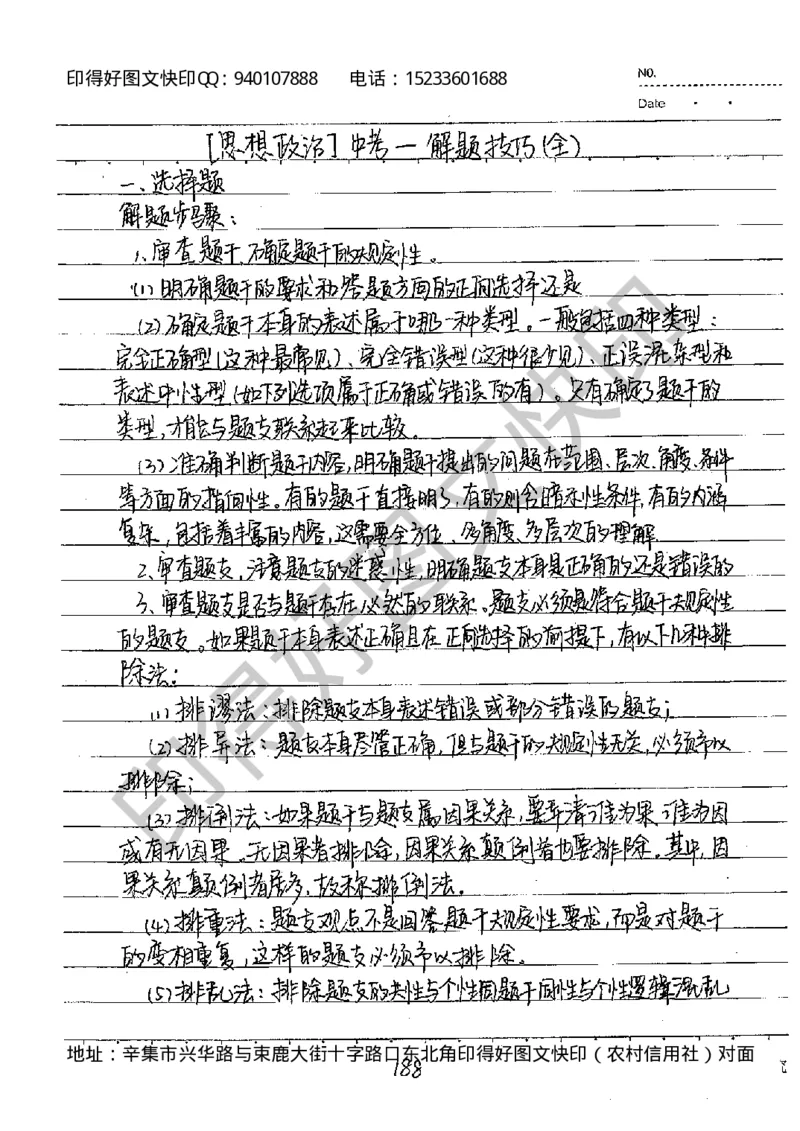 印得好图文快印QQ：940107888 电话：15233601688
NO.
Date
[思想政治] 中考一解题技巧(全)
一、选择题
解题步骤：
1、审查题干，确定题干的规定性。
(1) 明确题干的要求和答题方面的正向选择还是
(2) 确定题干本身的表述属于哪一种类型。一般包括四种类型：
完全正确型(这种最常见)、完全错误型(这种很少见)、正误混杂型和
表述中性型(如下列选项属于正确或错误的有)。只有确定了题干的
类型，才能与题支联系起来比较。
(3) 准确判断题干内容，明确题干提出的问题在范围、层次、角度、条件
等方面的指向性。有的题干直接明了，有的则含暗示性条件，有的内涵
复杂，包括着丰富的内容，这需要全方位、多角度、多层次的理解
2、审查题支，注意题支的迷惑性，明确题支本身是正确的还是错误的
3、审查题支是否与题干存在必然的联系。题支必须是符合题干规定性
的题支。如果题干本身表述正确且在正向选择的前提下，有以下几种排
除法：
(1) 排谬法：排除题支本身表述错误或部分错误的题支；
(2) 排异法：题支本身尽管正确，但与题干的规定性无关，必须予以
排除；
(3) 排倒法：如果题干与题支属因果关系，要弄清谁为果、谁为因
或有无因果。无因果者排除，因果关系颠倒者也要排除。其中，因
果关系颠倒者居多，故称排倒法。
(4) 排重法：题支观点不是回答题干规定性要求，而是对题干
的变相重复，这样的题支必须予以排除。
(5) 排乱法：排除题支的共性与个性同题干同性与个性逻辑混乱
地址：辛集市兴华路与束鹿大街十字路口东北角印得好图文快印（农村信用社）对面
188
印得好图文快印